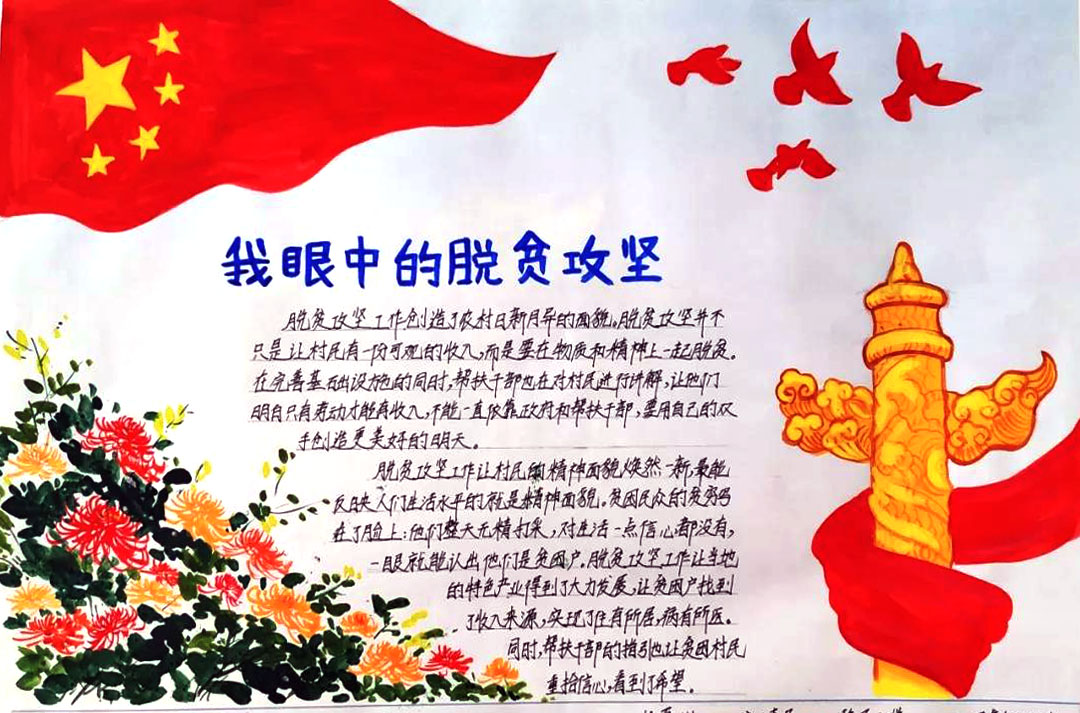 我眼中的脱贫攻坚
脱贫攻坚工作创造了农村日新月异的面貌。脱贫攻坚并不
只是让村民有一份可观的收入,而是要在物质和精神上一起脱贫。
在完善基础设施的同时,帮扶干部也在对村民进行讲解,让他们
明白只有劳动才能有收入,不能一直依靠政府和帮扶干部,要用自己的双
手创造更美好的明天。
脱贫攻坚工作让村民的精神面貌焕然一新,最能
反映人们生活水平的就是精神面貌。贫困民众的贫穷写
在了脸上:他们整天无精打采,对生活一点信心都没有,
一眼就能认出他们是贫困户。脱贫攻坚工作让当地
的特色产业得到了大力发展,让贫困户找到
了收入来源,实现了住有所居,病有所医。
同时,帮扶干部的指引也让贫困村民
重拾信心,看到了希望。